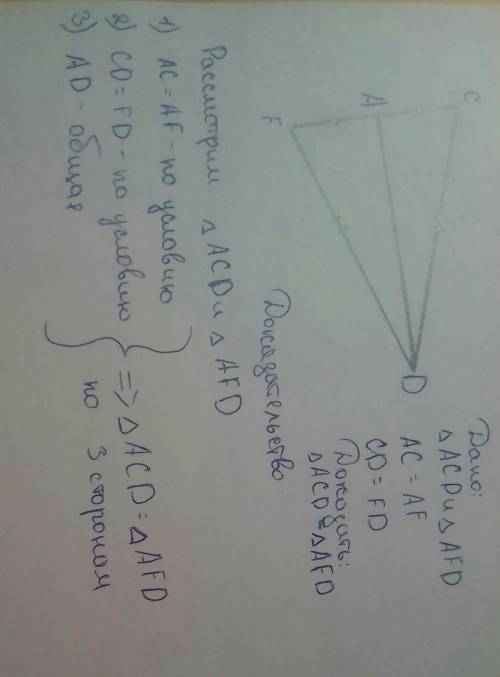 C
A
F
D
Дано:
△ACD и △AFD
AC = AF
CD = FD
Доказать:
△ACD = △AFD
Доказательство
Рассмотрим △ACD и △AFD
1) AC = AF - по условию
2) CD = FD - по условию
3) AD - общая
=> △ACD = △AFD
по 3 сторонам